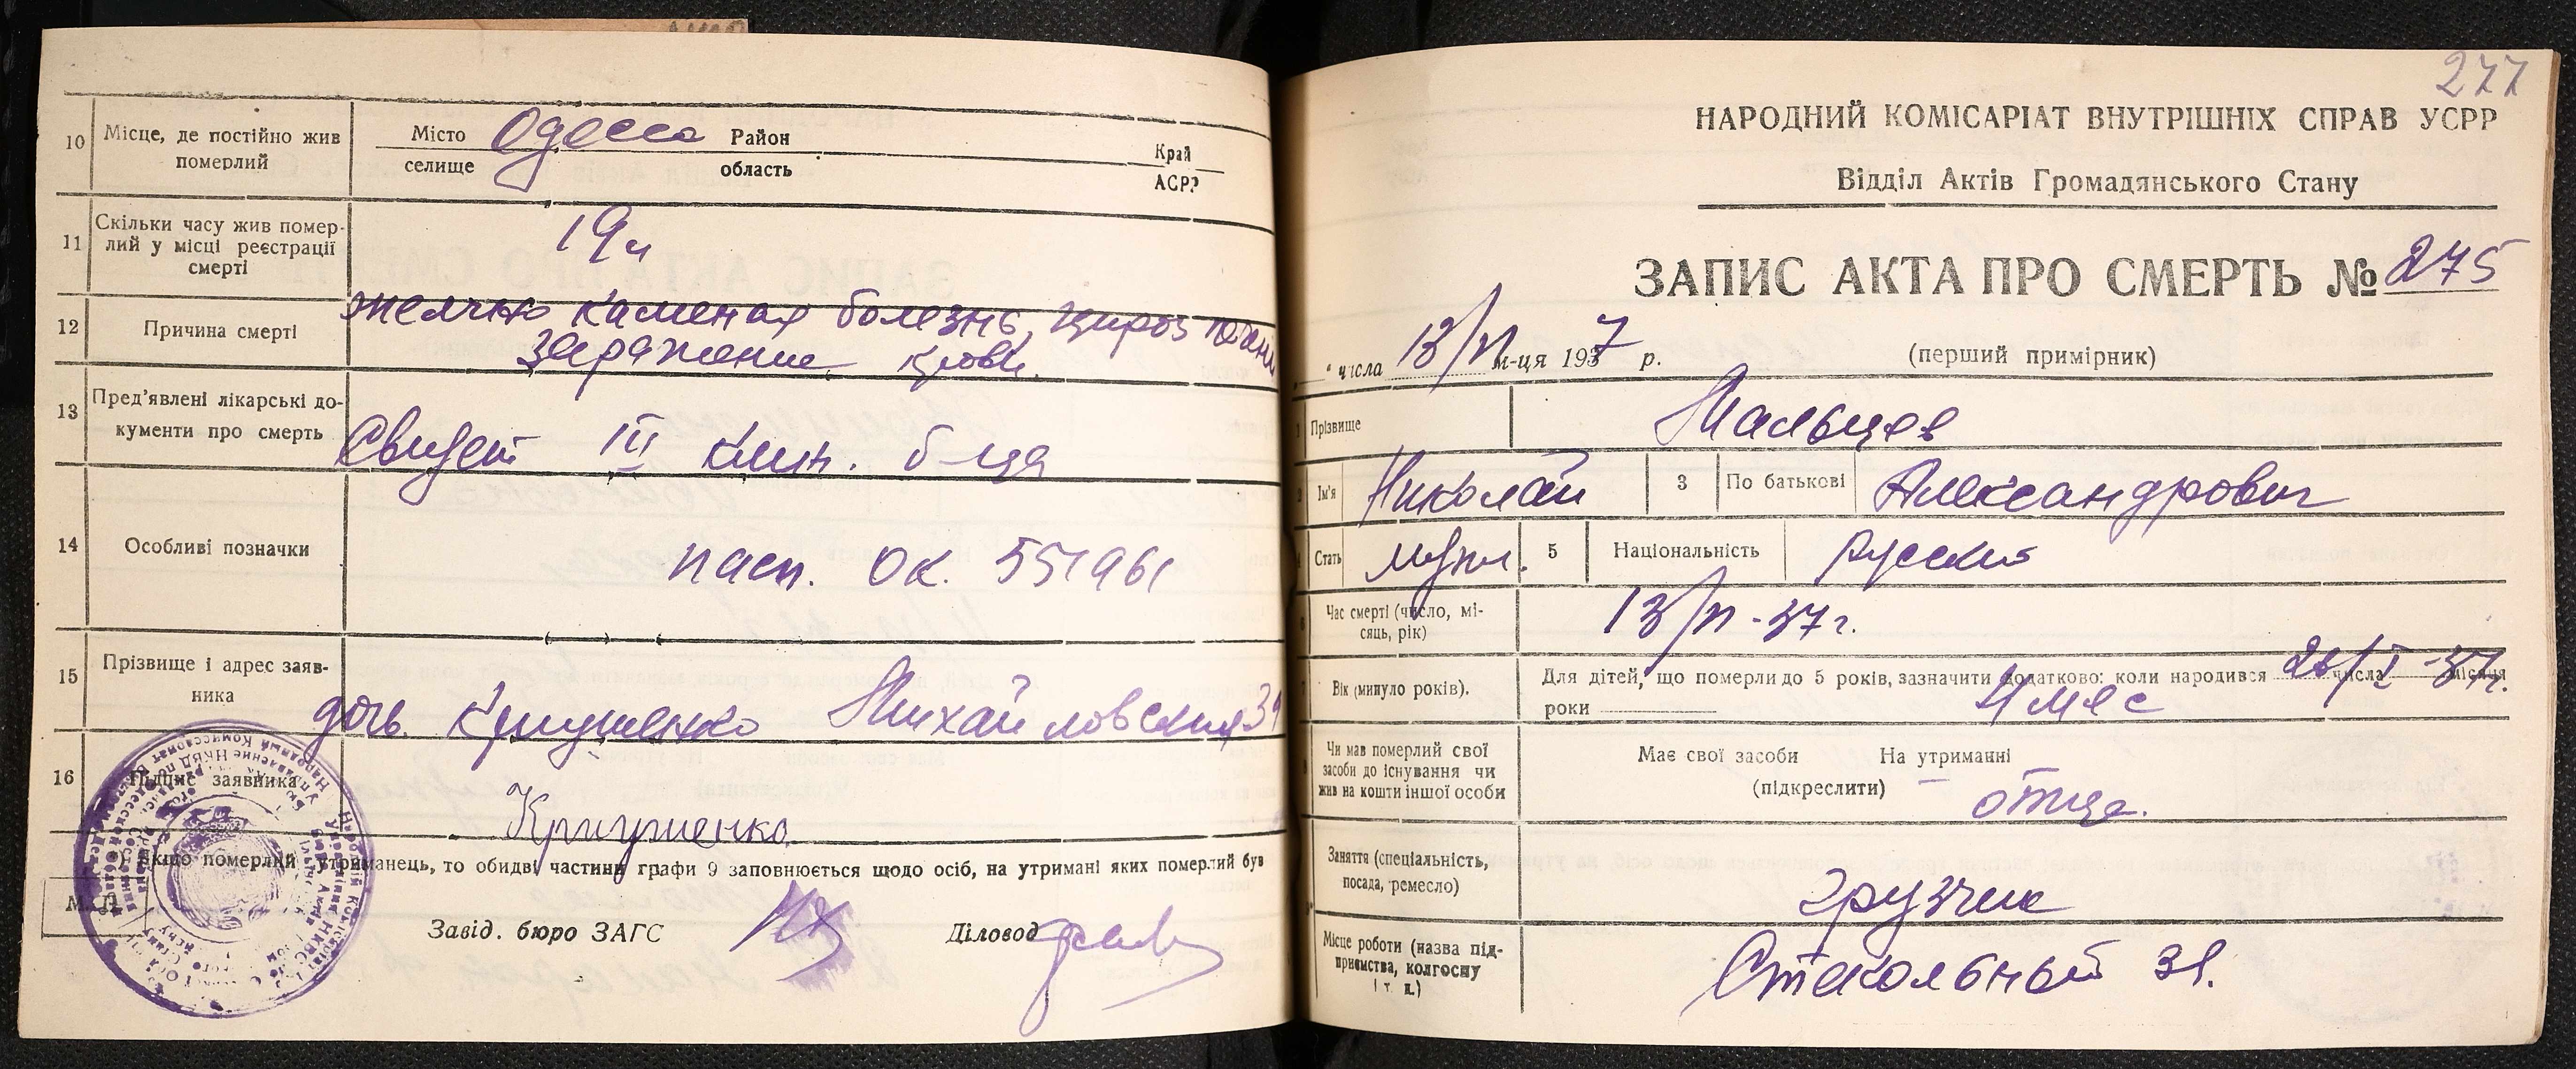 10 Місце, де постійно жив померлий
Місто Одесса Район Край
селище область АСРР
11 Скільки часу жив померлий у місці реєстрації смерті
12 Причина смерті
заражение крови.
13 Пред'явлені лікарські документи про смерть
Свидет III клин. б-ца
14 Особливі позначки
пасп. ОК. 551961
15 Прізвище і адрес заявника
дочь
16 Підпис заявника
) Якщо померлий утриманець, то обидві частини графи 9 заповнюється щодо осіб, на утримані яких померлий був
М.П.
Завід. бюро ЗАГС Діловод
277
НАРОДНИЙ КОМІСАРІАТ ВНУТРІШНІХ СПРАВ УСРР
Відділ Актів Громадянського Стану
ЗАПИС АКТА ПРО СМЕРТЬ № 275
" числа 13/VI м-ця 1937 р. (перший примірник)
Прізвище Мальцев
Ім'я Николай 3 По батькові Александрович
Стать муж. 5 Національність русский
Час смерті (число, місяць, рік) 13/VI-37 г.
Вік (минуло років).
Для дітей, що померли до 5 років, зазначити додатково: коли народився 26/I-37г. числа місяця
роки 4 мес
Чи мав померлий свої засоби до існування чи жив на кошти іншої особи
Має свої засоби На утриманні
(підкреслити) отца.
Заняття (спеціальність, посада, ремесло) грузчик
Місце роботи (назва підприємства, колгоспу і т. и.) Стекольный зд.